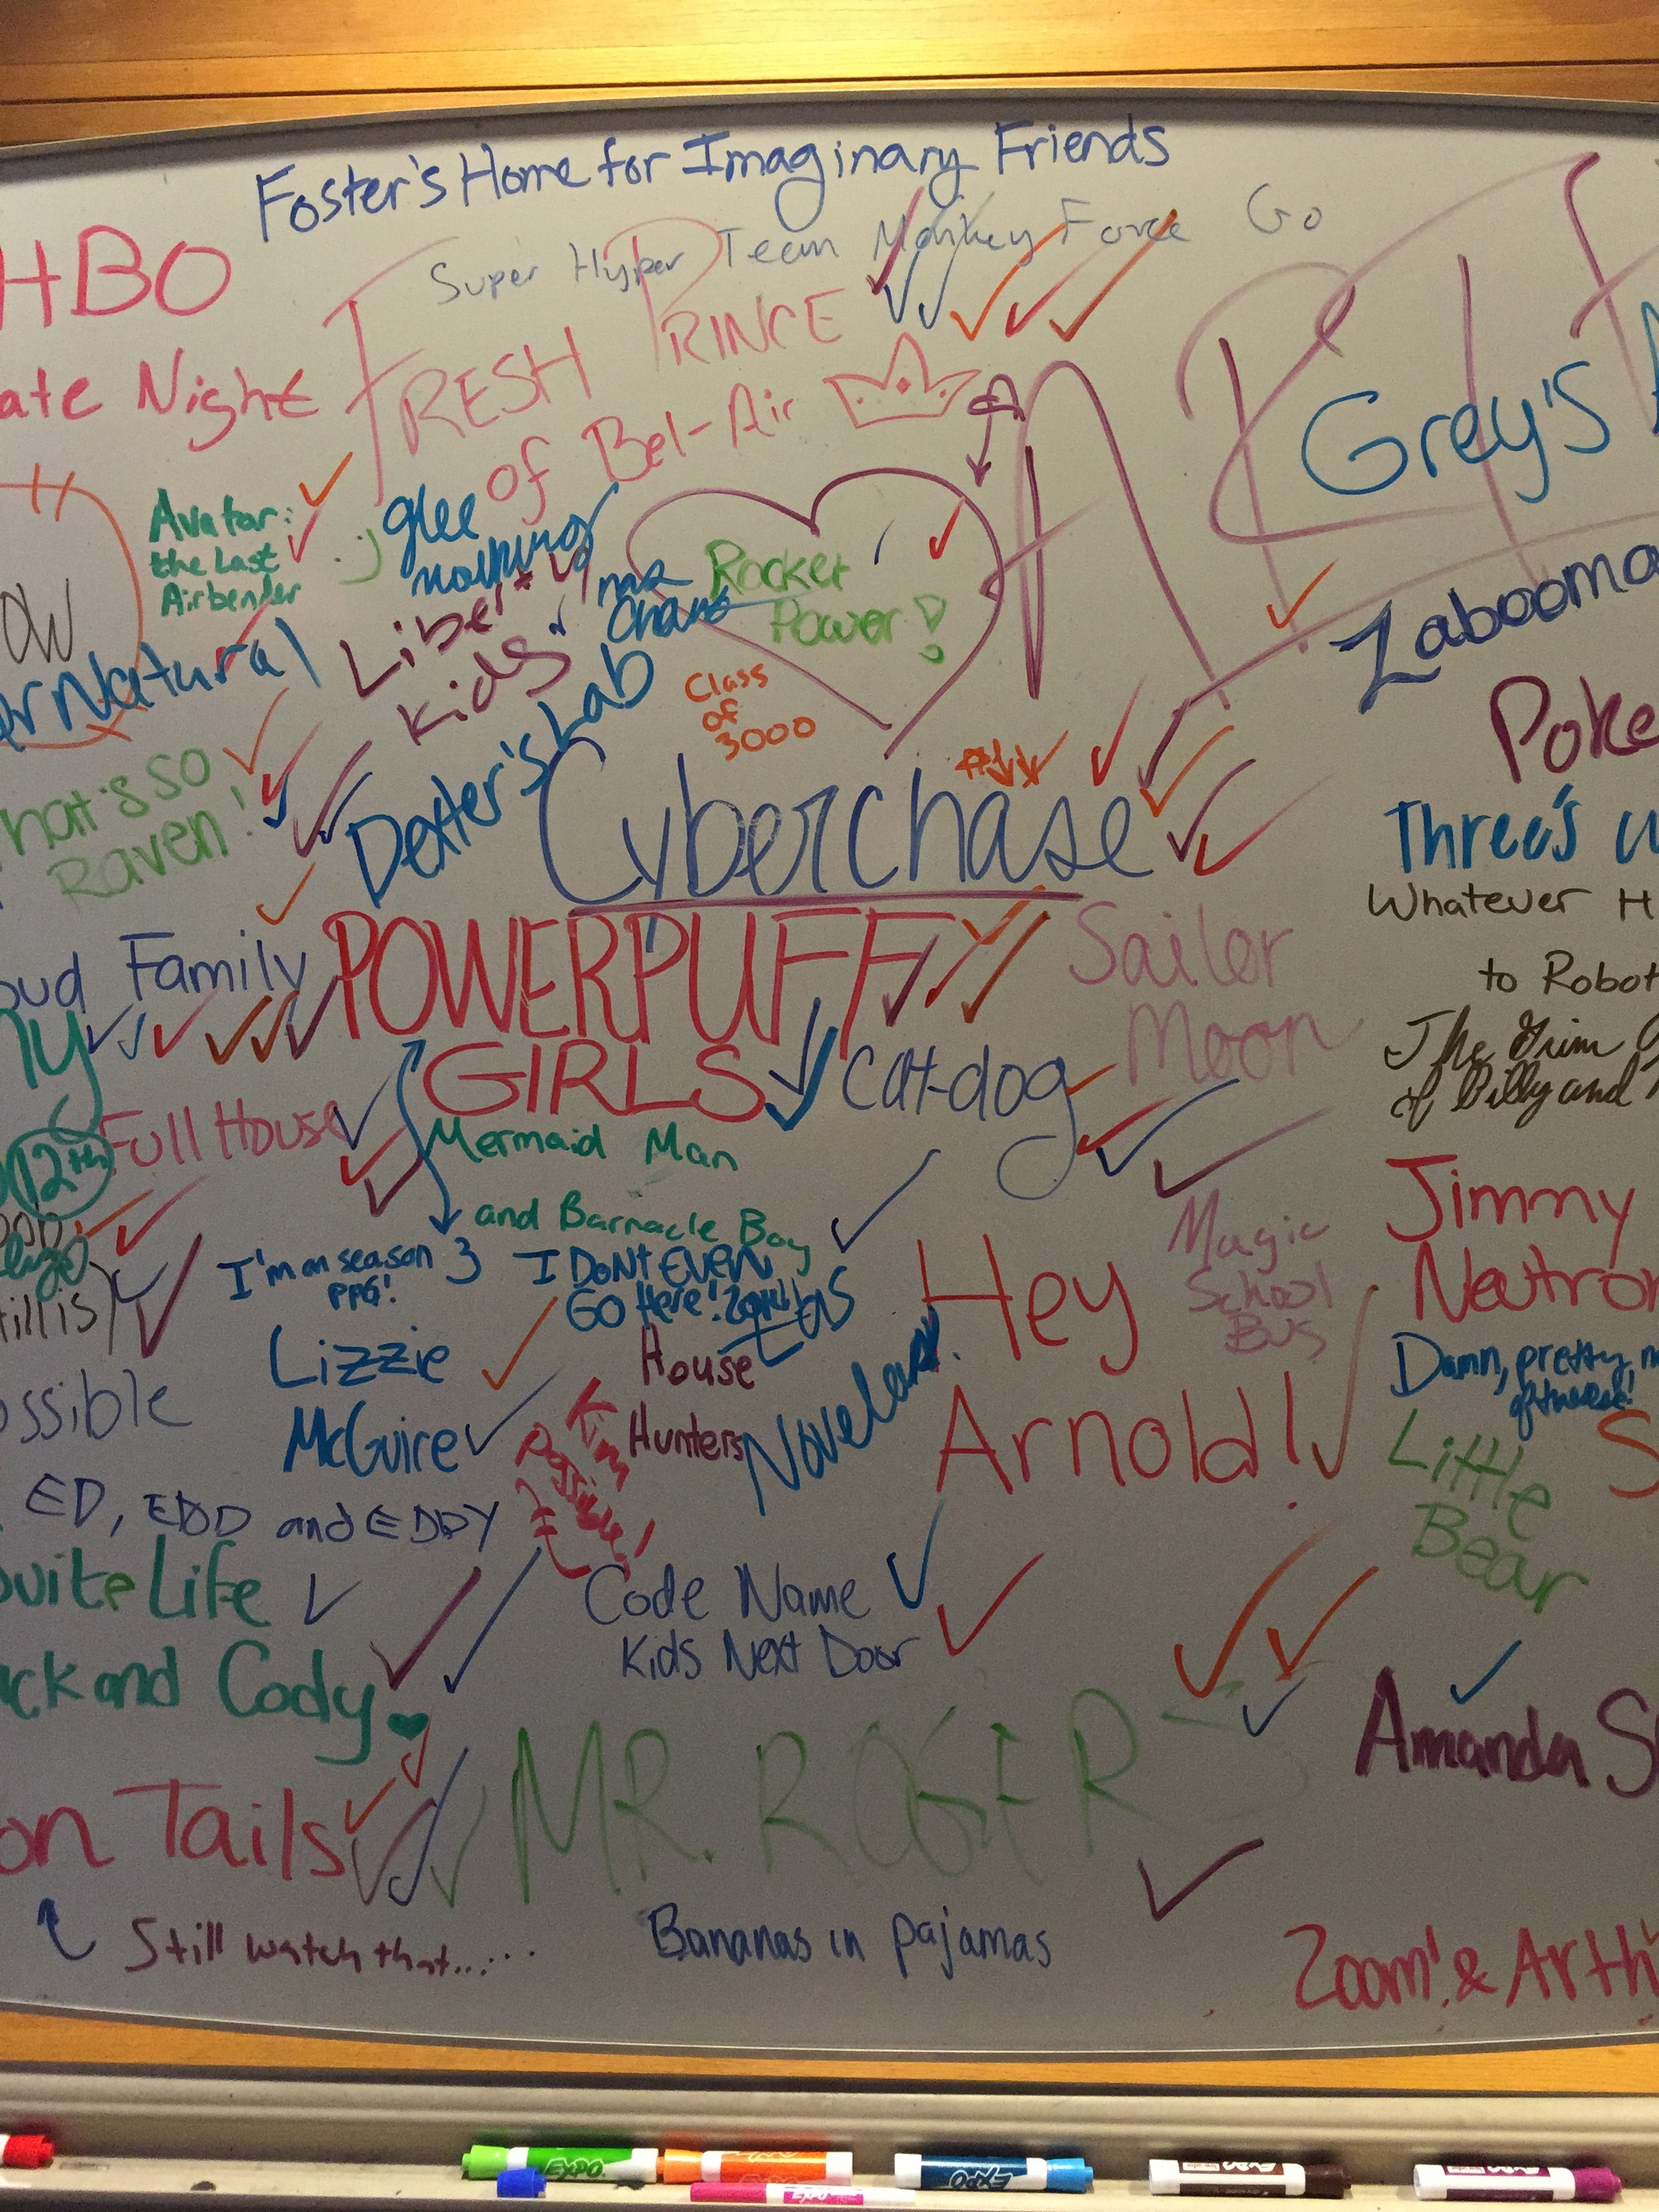 Foster's Home for Imaginary Friends
Super Hyper Team Monkey Force Go
HBO
ate Night
FRESH PRINCE
of Bel-Air
Grey's
Avatar:
the Last
Airbender
glee
Rocket
Power!
OW
rNatural
Liberty
Kids
Dexter's Lab
Class
of
3000
Zabooma
Poke
hat's so
Raven!
Cyberchase
Three's
Whatever H
to Robot
oud Family
POWERPUFF
GIRLS
Sailor
Moon
cat-dog
The Grim
of Billy and
ny
12th
Full House
Mermaid Man
and Barnacle Boy
I'm on season 3
PPG!
I DONT EVEN
GO Here!
Hey
Arnold!
Magic
School
Bus
Jimmy
Neutron
Damn, pretty
Lizzie
McGuire
House
Hunters
Novelas
Kim
Possible!
till is)
ossible
Little
Bear
ED, EDD and EDDY
uite Life
ck and Cody
Code Name
Kids Next Door
MR. ROGERS
Amanda S
on Tails
Still watch that.....
Bananas in pajamas
Zoom! & Arth
EXPO
EXPO
EXPO